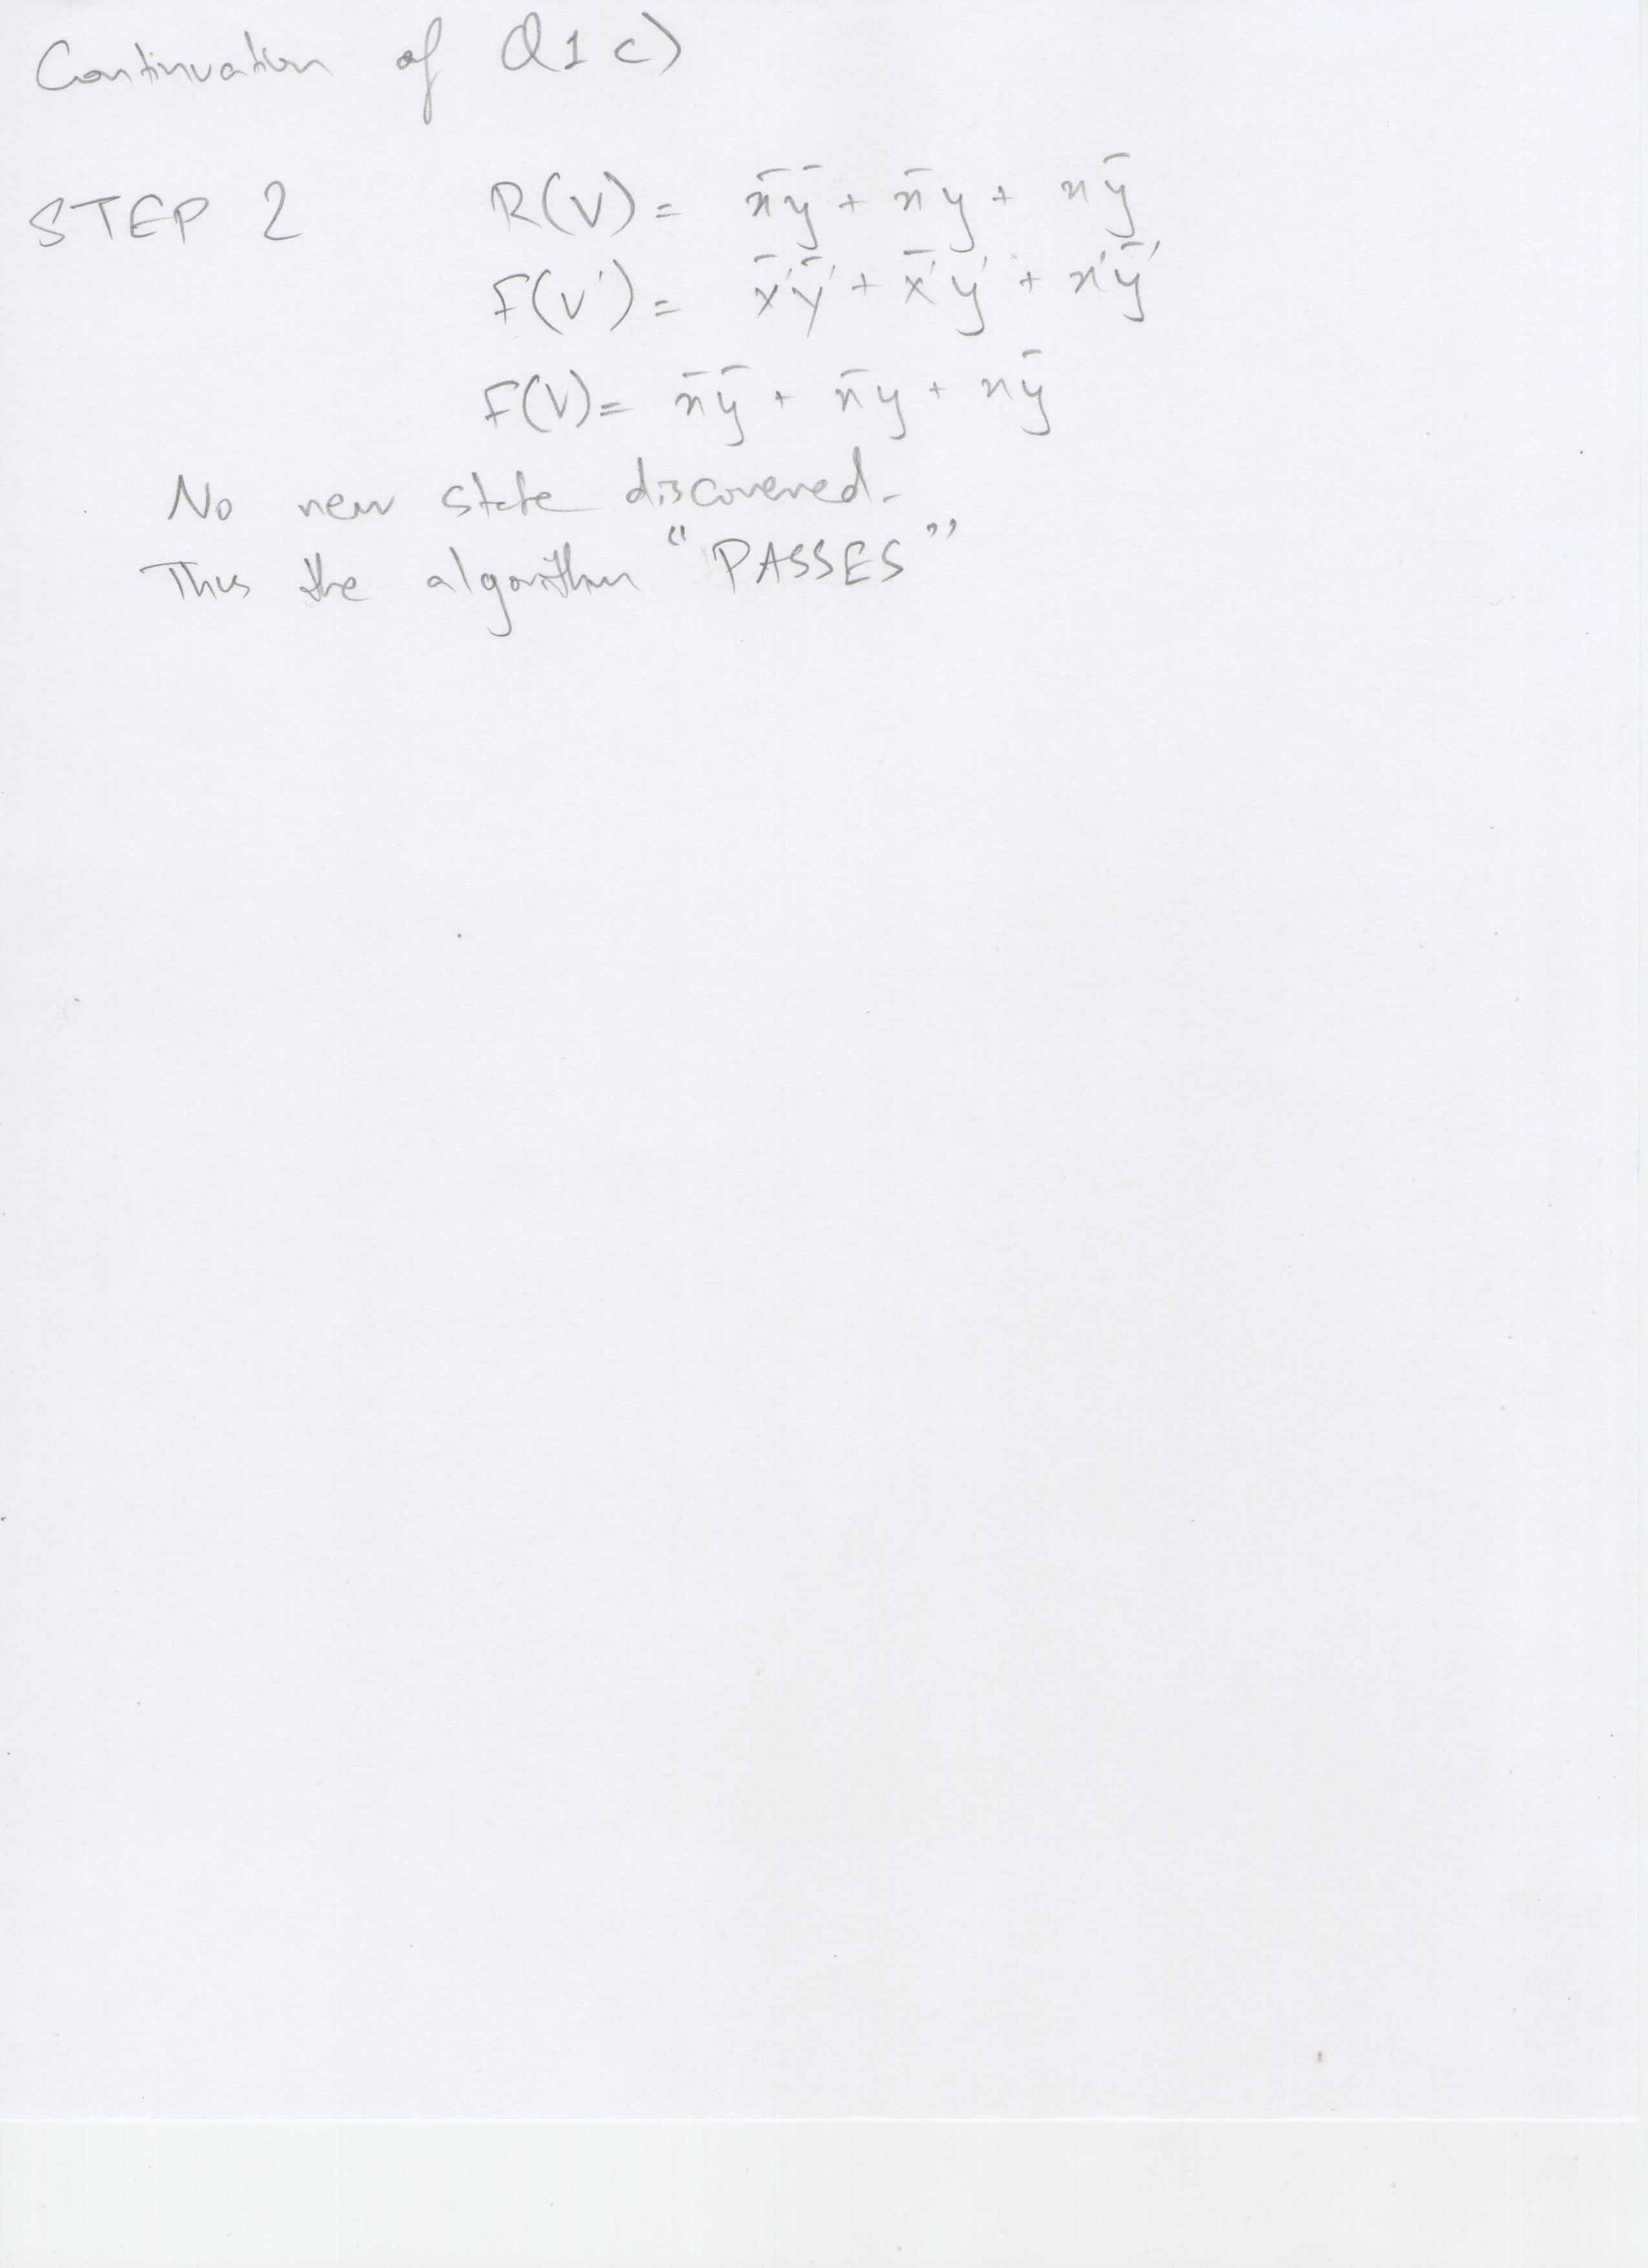 Continuation of Q1 c)
STEP 2 R(V) = x̄ȳ + x̄y + xȳ
F(V') = x̄'ȳ' + x̄'y' + x'ȳ'
F(V) = x̄ȳ + x̄y + xȳ
No new state discovered.
Thus the algorithm "PASSES"